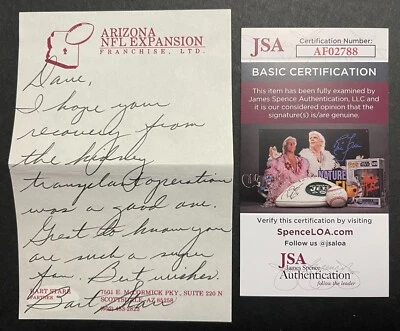 ARIZONA
NFL EXPANSION
FRANCHISE, LTD.
Dave,
I hope your
recovery from
the kidney
transplant operation
was a good one.
Great to know you
are such a super
fan. Best wishes.
Bart Starr
BART STARR
PARTNER
7501 E. McCORMICK PKY, SUITE 220 N
SCOTTSDALE, AZ 85258
JSA
Certification Number:
AF02788
BASIC CERTIFICATION
This item has been fully examined by
James Spence Authentication, LLC and
it is our considered opinion that the
signature(s) is/are genuine.
NATURE
JETS
Verify this certification by visiting
SpenceLOA.com
Follow us @jsaloa
JSA
James Spence
Authentication
follow the leader